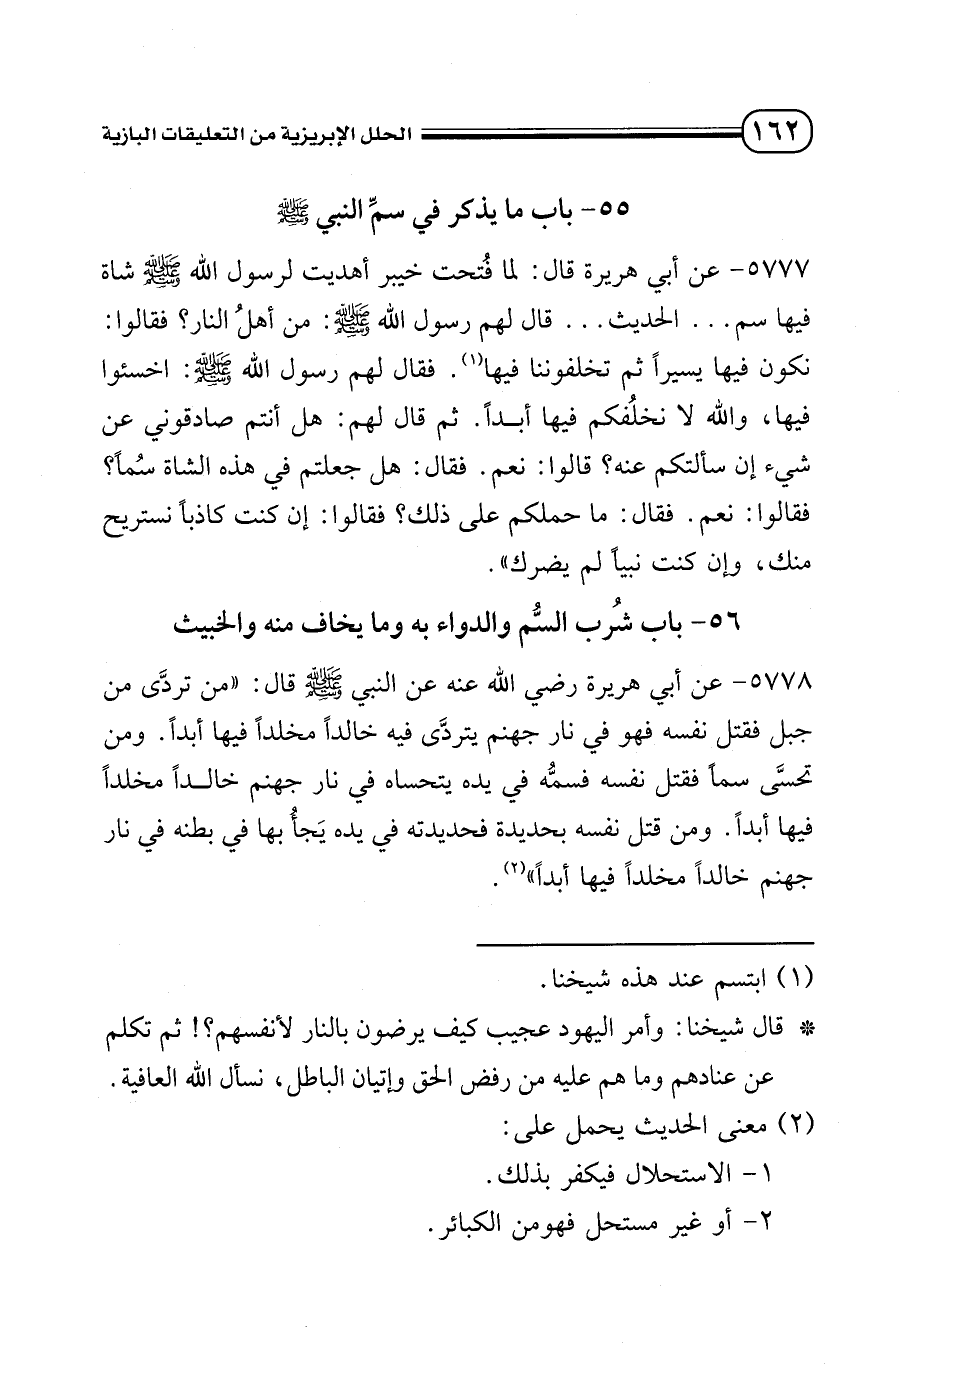 ١٦٢ الحلل الإبريزية من التعليقات البازية
٥٥- باب ما يذكر في سمِّ النبي ﷺ
٥٧٧٧- عن أبي هريرة قال: لما فُتحت خيبر أهديت لرسول الله ﷺ شاة
فيها سم... الحديث... قال لهم رسول الله ﷺ: من أهلُ النار؟ فقالوا:
نكون فيها يسيراً ثم تخلفوننا فيها(١). فقال لهم رسول الله ﷺ: اخسئوا
فيها، والله لا نخلُفكم فيها أبـداً. ثم قال لهم: هل أنتم صادقوني عن
شيء إن سألتكم عنه؟ قالوا: نعم. فقال: هل جعلتم في هذه الشاة سُماً؟
فقالوا: نعم. فقال: ما حملكم على ذلك؟ فقالوا: إن كنت كاذباً نستريح
منك، وإن كنت نبياً لم يضرك».
٥٦- باب شُرب السُّم والدواء به وما يخاف منه والخبيث
٥٧٧٨- عن أبي هريرة رضي الله عنه عن النبي ﷺ قال: «من تردَّى من
جبل فقتل نفسه فهو في نار جهنم يتردَّى فيه خالداً مخلداً فيها أبداً. ومن
تحسَّى سماً فقتل نفسه فسمُّه في يده يتحساه في نار جهنم خالـداً مخلداً
فيها أبداً. ومن قتل نفسه بحديدة فحديدته في يده يَجأُ بها في بطنه في نار
جهنم خالداً مخلداً فيها أبداً»(٢).
(١) ابتسم عند هذه شيخنا.
* قال شيخنا: وأمر اليهود عجيب كيف يرضون بالنار لأنفسهم؟! ثم تكلم
عن عنادهم وما هم عليه من رفض الحق وإتيان الباطل، نسأل الله العافية.
(٢) معنى الحديث يحمل على:
١- الاستحلال فيكفر بذلك.
٢- أو غير مستحل فهومن الكبائر.